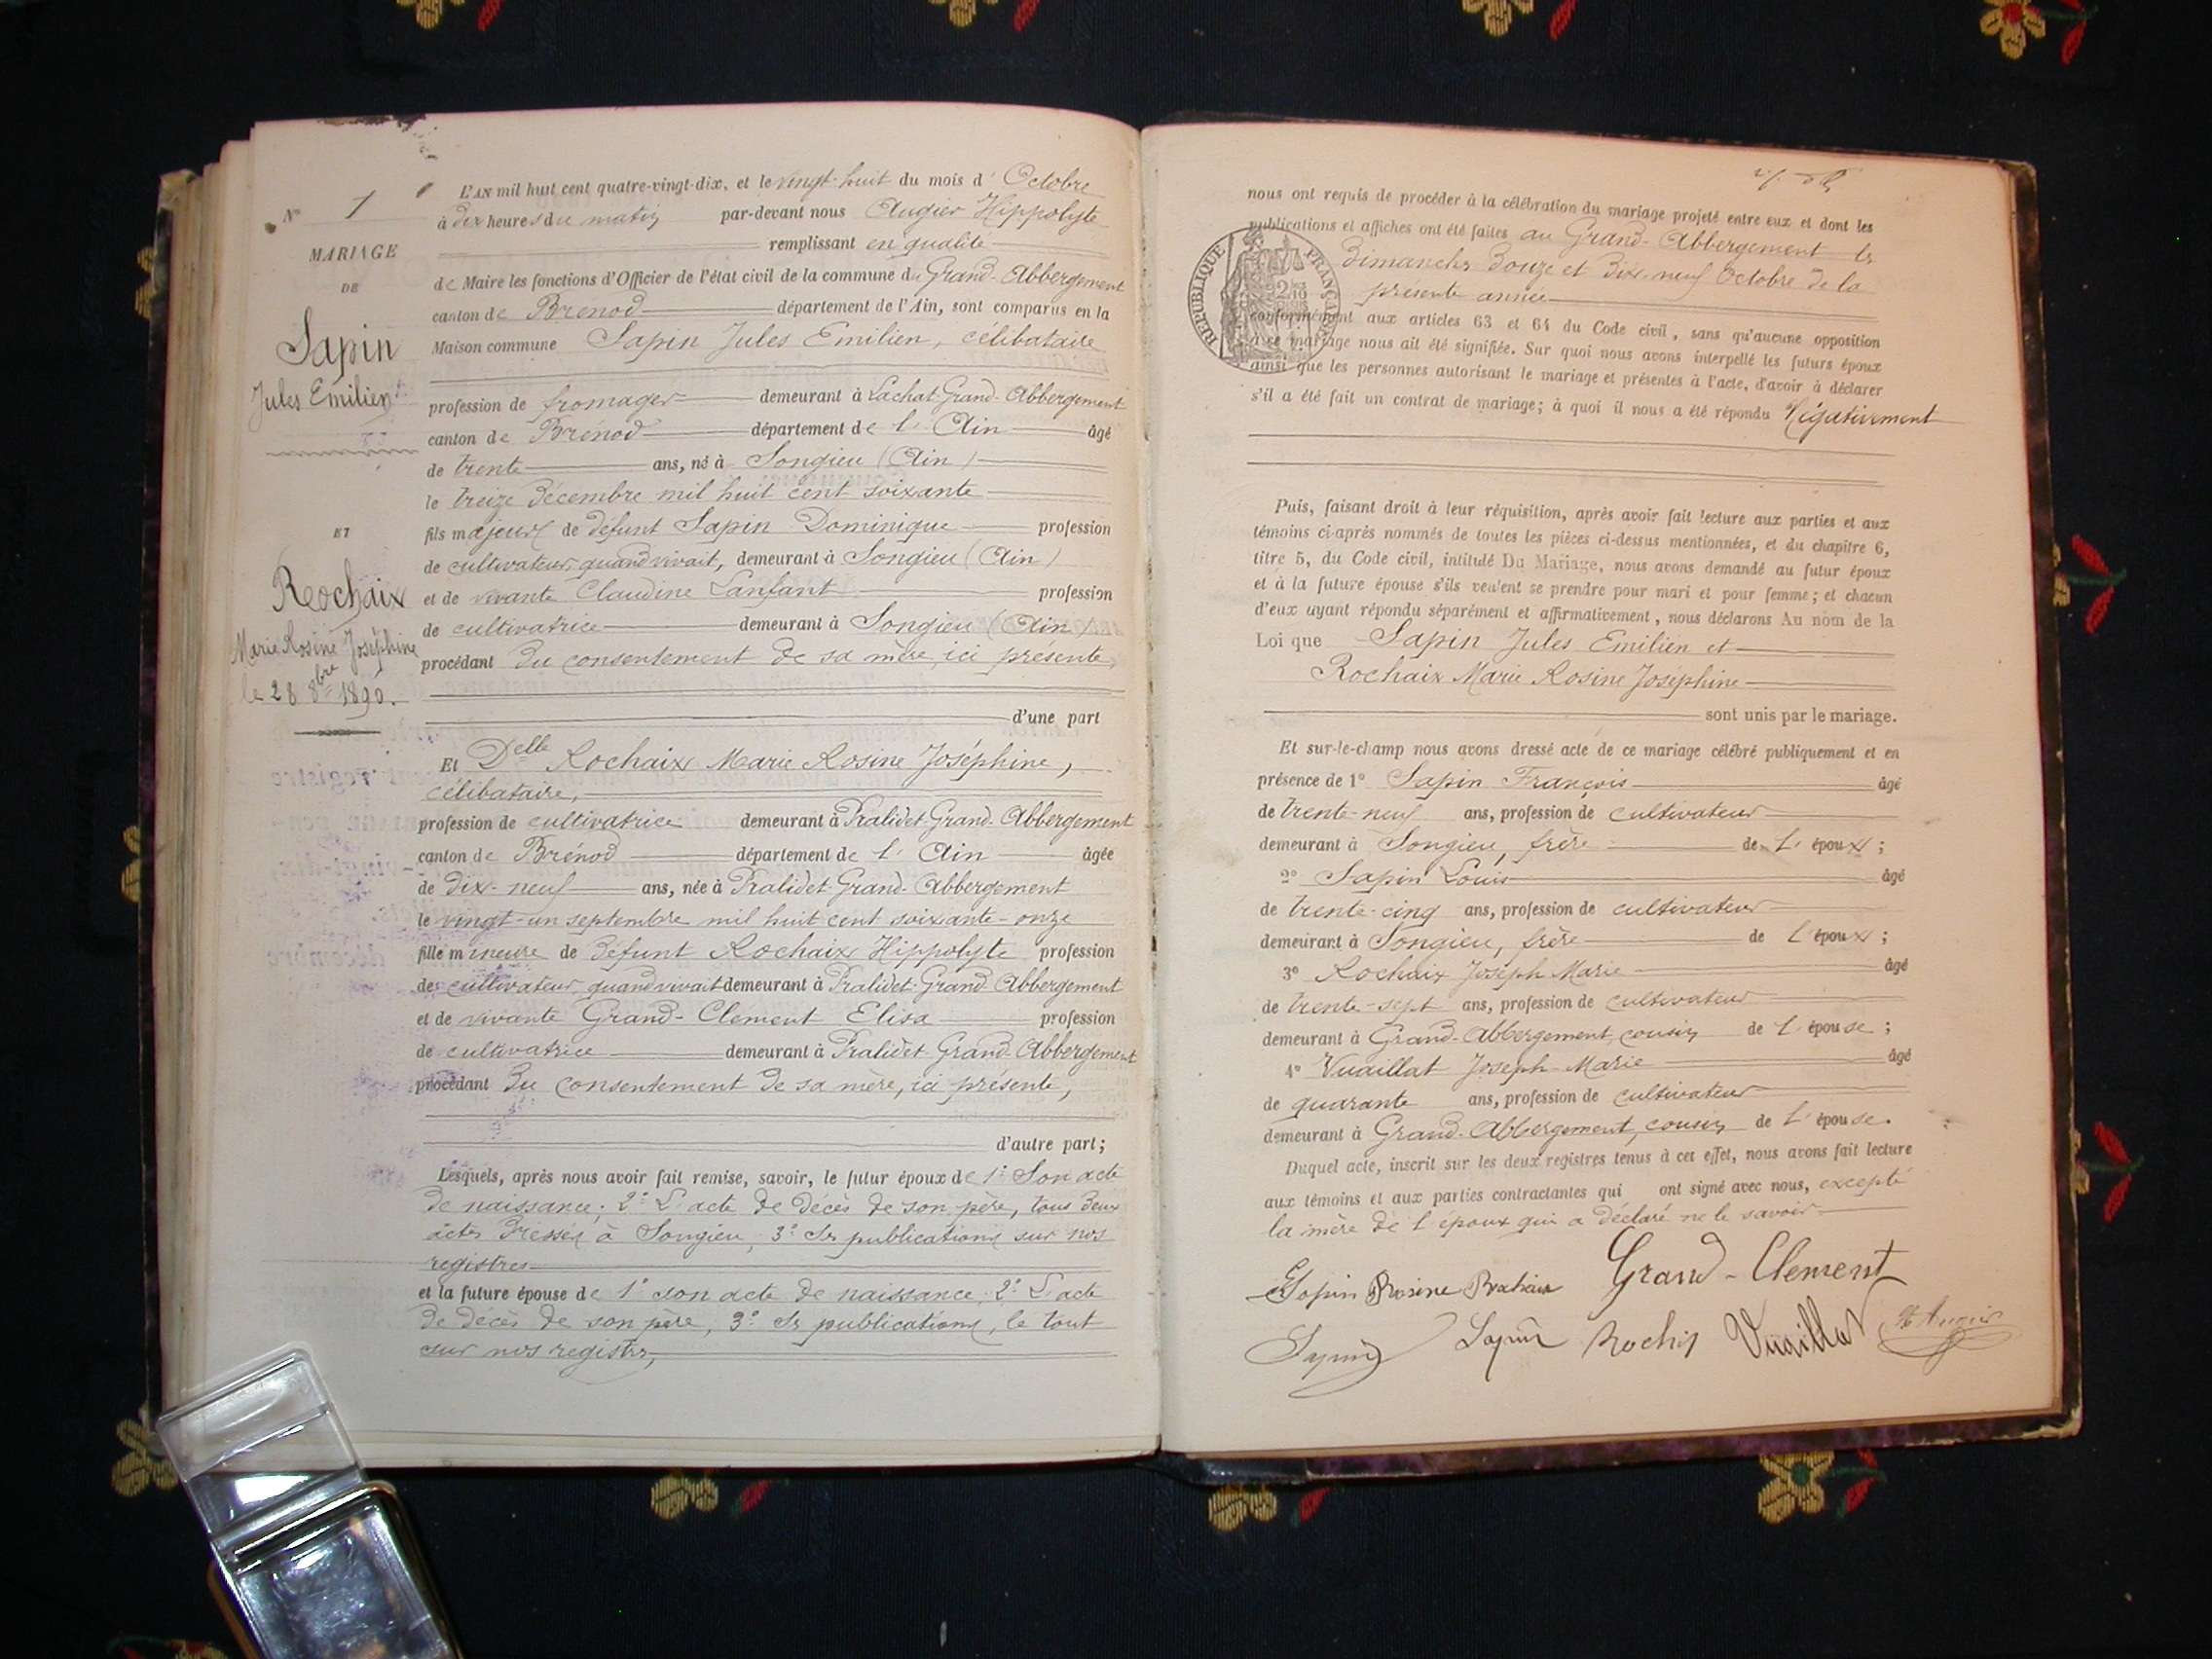 L'AN mil huit cent quatre-vingt-dix, et le vingt-huit du mois d' Octobre
N° 1
à dix heures du matin par-devant nous Augier Hippolyte
MARIAGE
remplissant en qualité
DE
de Maire les fonctions d'Officier de l'état civil de la commune du Grand-Abbergement
canton de Brenod département de l'Ain, sont comparus en la
Sapin
Maison commune Sapin Jules Emilien, célibataire
Jules Emilien
profession de fromager demeurant à Lachat-Grand-Abbergement
canton de Brénod département de l'Ain âgé
de trente ans, né à Songieu (Ain)
le treize Décembre mil huit cent soixante
ET
fils majeur de défunt Sapin Dominique profession
de cultivateur, quand vivait, demeurant à Songieu (Ain)
Rochaix
et de vivante Claudine Lanfant profession
de cultivatrice demeurant à Songieu (Ain)
Marie Rosine Joséphine
procédant du consentement de sa mère, ici présente,
le 28 8bre 1890.
d'une part
Et Delle Rochaix Marie Rosine Joséphine,
célibataire,
profession de cultivatrice demeurant à Pralidet-Grand-Abbergement
canton de Brénod département de l'Ain âgée
de dix-neuf ans, née à Pralidet-Grand-Abbergement
le vingt-un septembre mil huit cent soixante-onze
fille mineure de défunt Rochaix Hippolyte profession
de cultivateur, quand vivait demeurant à Pralidet-Grand-Abbergement
et de vivante Grand-Clément Elisa profession
de cultivatrice demeurant à Pralidet-Grand-Abbergement
procédant du consentement de sa mère, ici présente,
d'autre part;
Lesquels, après nous avoir fait remise, savoir, le futur époux de 1° Son acte
de naissance; 2° L'acte de décès de son père, tous deux
actes dressés à Songieu, 3° Les publications sur nos
registres
et la future épouse de 1° son acte de naissance, 2° L'acte
de décès de son père, 3° Les publications, le tout
sur nos registres,
nous ont requis de procéder à la célébration du mariage projeté entre eux et dont les
publications et affiches ont été faites au Grand-Abbergement les
Dimanches Douze et Dix-neuf Octobre de la
présente année
RÉPUBLIQUE FRANÇAISE
conformément aux articles 63 et 64 du Code civil, sans qu'aucune opposition
à ce mariage nous ait été signifiée. Sur quoi nous avons interpellé les futurs époux
ainsi que les personnes autorisant le mariage et présentes à l'acte, d'avoir à déclarer
s'il a été fait un contrat de mariage; à quoi il nous a été répondu Négativement
Puis, faisant droit à leur réquisition, après avoir fait lecture aux parties et aux
témoins ci-après nommés de toutes les pièces ci-dessus mentionnées, et du chapitre 6,
titre 5, du Code civil, intitulé Du Mariage, nous avons demandé au futur époux
et à la future épouse s'ils veulent se prendre pour mari et pour femme; et chacun
d'eux ayant répondu séparément et affirmativement, nous déclarons Au nom de la
Loi que Sapin Jules Emilien et
Rochaix Marie Rosine Joséphine
sont unis par le mariage.
Et sur-le-champ nous avons dressé acte de ce mariage célébré publiquement et en
présence de 1° Sapin François âgé
de trente-neuf ans, profession de cultivateur
demeurant à Songieu, frère de l'époux;
2° Sapin Louis âgé
de trente-cinq ans, profession de cultivateur
demeurant à Songieu, frère de l'époux;
3° Rochaix Joseph Marie âgé
de trente-sept ans, profession de cultivateur
demeurant à Grand-Abbergement, cousin de l'épouse;
4° Vuaillat Joseph-Marie âgé
de quarante ans, profession de cultivateur
demeurant à Grand-Abbergement, cousin de l'épouse.
Duquel acte, inscrit sur les deux registres tenus à cet effet, nous avons fait lecture
aux témoins et aux parties contractantes qui ont signé avec nous, excepté
la mère de l'époux qui a déclaré ne le savoir.
Sapin Rosine Grand-Clement
Sapin Sapin Vuaillat H Augier